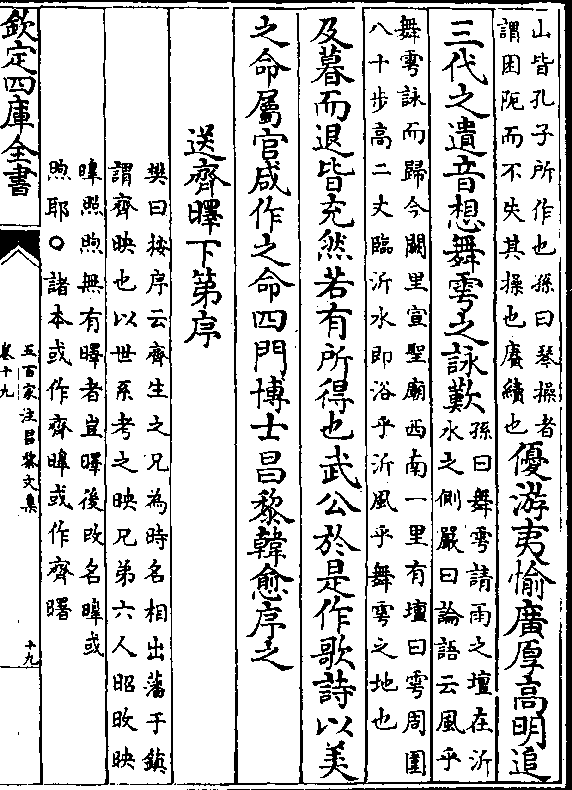 山皆孔子所作也孫曰琴操者
謂困阨而不失其操也賡續也
優游夷愉廣厚高明追
三代之遺音想舞雩之詠歎
孫曰舞雩請雨之壇在沂
水之側嚴曰論語云風乎
舞雩詠而歸今闕里宣聖廟西南一里有壇曰雩周圍
八十步高二丈臨沂水即浴乎沂風乎舞雩之地也
及暮而退皆充然若有所得也武公於是作歌詩以美
之命屬官咸作之命四門博士昌黎韓愈序之
送齊暤下第序
樊曰按序云齊生之兄為時名相出藩于鎮
謂齊映也以世系考之映兄弟六人昭旼映
暐照煦無有暤者豈暤後改名暐或
煦耶○諸本或作齊暐或作齊曙
欽定四庫全書
五百家注昌黎文集
卷十九
十九